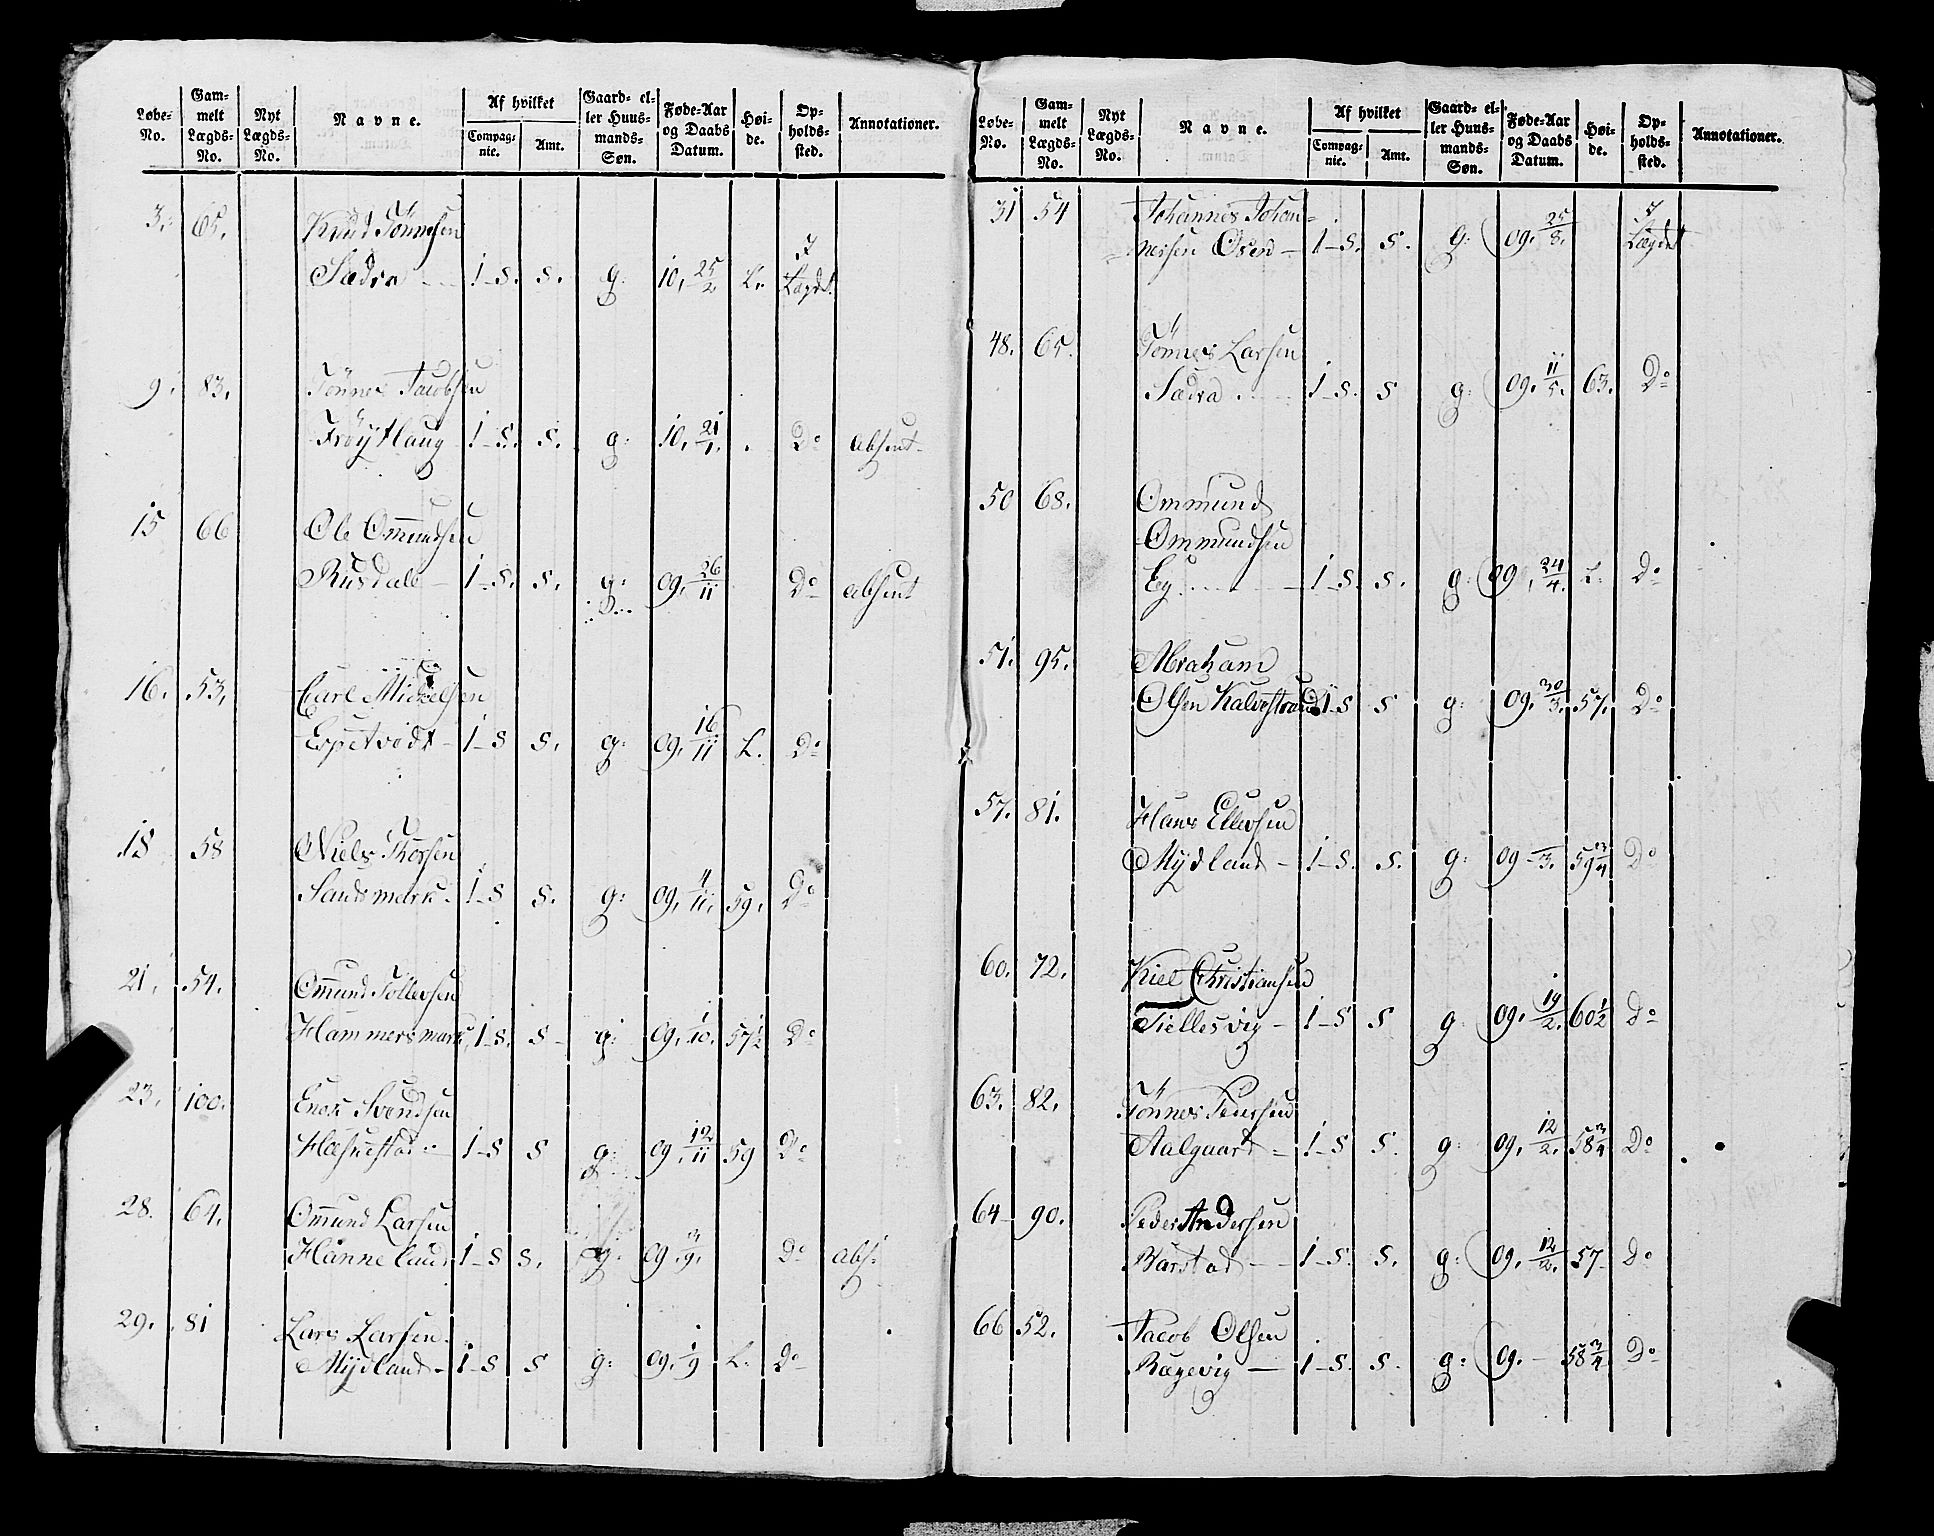 Løbe-No. Gammelt Lægds-No. Nyt Lægds-No. Navne. Af hvilket Compagnie. Amt. Gaard- eller Huusmands-Søn. Føde-Aar og Daabs Datum. Høide. Opholdssted. Annotationer.
3. 65. Knud Tønnesen
Sædra 1-S. S. g: 10, 25/2 L. I Lægdet
9. 83. Tønnes Jacobsen
Frøÿtlaug 1-S. S. g: 10, 21/1. Do absent
15 66 Ole Omundsen
Rusdale 1-S. S. g: 09, 26/11 Do absent
16. 53, Carl Mickelsen
Espetvedt 1-S S. g: 09, 16/11 L. Do
18 58 Niels Thorsen
Sandsmark 1-S S. g: 09, 4/11. 59. Do
21. 54. Omund Tollevsen
Hammersmark, 1-S. S g: 09, 1/10. 57 1/2 Do
23. 100. Enok Svendsen
Hæsnestad 1-S S g: 09, 12/11 59 Do
28. 64. Omund Larsen
Hanneland 1-S S. g: 09 3/9. Do abs:
29. 81 Lars Larsen
Mÿdland 1-S S g: 09. 1/9 L. Do
Løbe-No. Gammelt Lægds-No. Nyt Lægds-No. Navne. Af hvilket Compagnie. Amt. Gaard- eller Huusmands-Søn. Føde-Aar og Daabs Datum. Høide. Opholdssted. Annotationer.
31 54 Johannes Johan=
nessen 1-S. S. g: 09. 25/8. I Lægdet
48. 65. Tønnes Larsen
Sædra 1-S. S g: 09. 11/5. 63. Do
50 68. Ommund
Ommundsen
Eg 1-S S. g: 09, 24/4. L. Do
51. 95. Abraham
Olsen Kalvestrand 1-S S g: 09. 30/3. 57. Do
57. 81. Hans Ellevsen
Mÿdland 1-S. S. g: 09 -/3. 59 3/4 Do
60. 72. Kiel Christiansen
Tiellesvig 1-S S g: 09. 19/2. 60 1/2 Do
63. 82. Tønnes Pedersen
Aalgaard 1-S S. g: 09. 12/2. 58 3/4 Do
64 90. Peder Andersen
Barstad 1-S. S. g: 09. 12/2. 57 Do
66 52. Jacob Olsen
Rægevig 1-S. S. g: 09. 58 3/4 Do